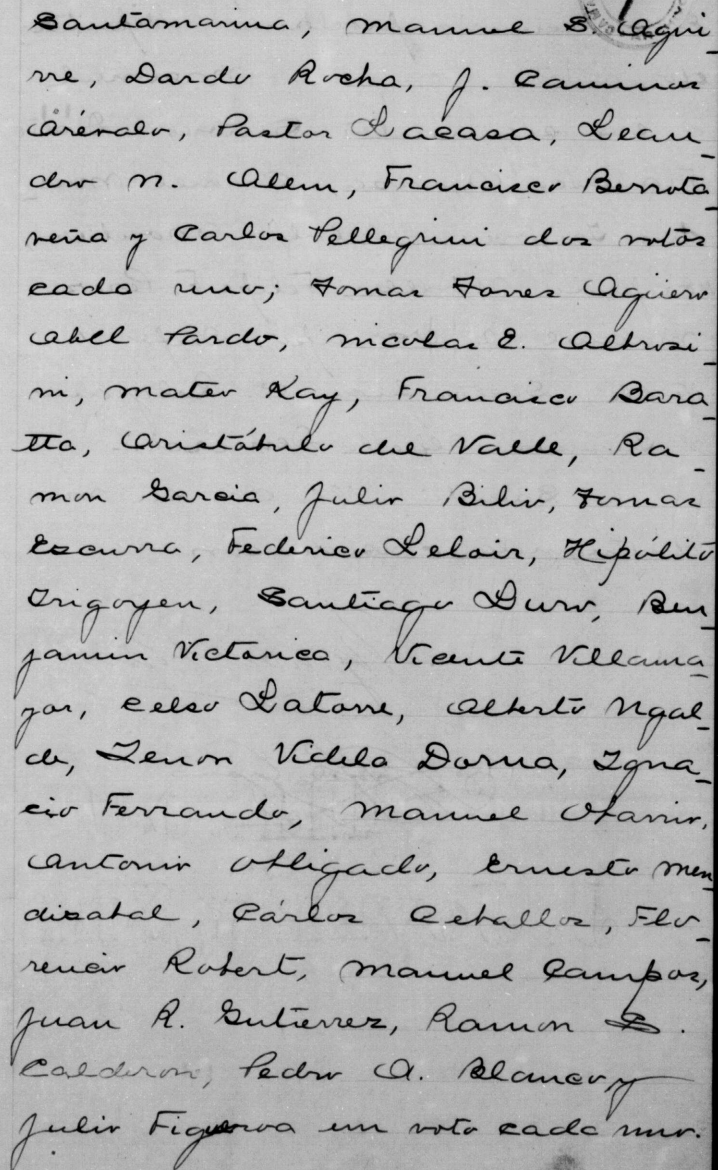 Santamarina, Manuel S. Agui-
rre, Dardo Rocha, J. Caminos
Arévalo, Pastor Lacasa, Lean-
dro N. Alem, Francisco Berrota-
veña y Carlos Pellegrini dos votos
cada uno; Tomas Torres Agüero
Abel Pardo, Nicolas E. Albrosi-
ni, Mateo Kay, Francisco Bara-
tta, Aristóbulo del Valle, Ra-
mon Garcia, Julio Bilio, Tomas
Escurra, Federico Leloir, Hipólito
Irigoyen, Santiago Duro, Ben-
jamin Victorica, Vicente Villama-
yor, Celso Latorre, Alberto Ugal-
de, Zenon Videla Dorna, Igna-
cio Ferrando, Manuel
Antonio Obligado, Ernesto Men-
disabal, Cárlos Ceballos, Flo-
rencio Robert, Manuel Campos,
Juan R. Gutierrez, Ramon B.
Calderon, Pedro A. Blanco, y
Julio Figueroa un voto cada uno.